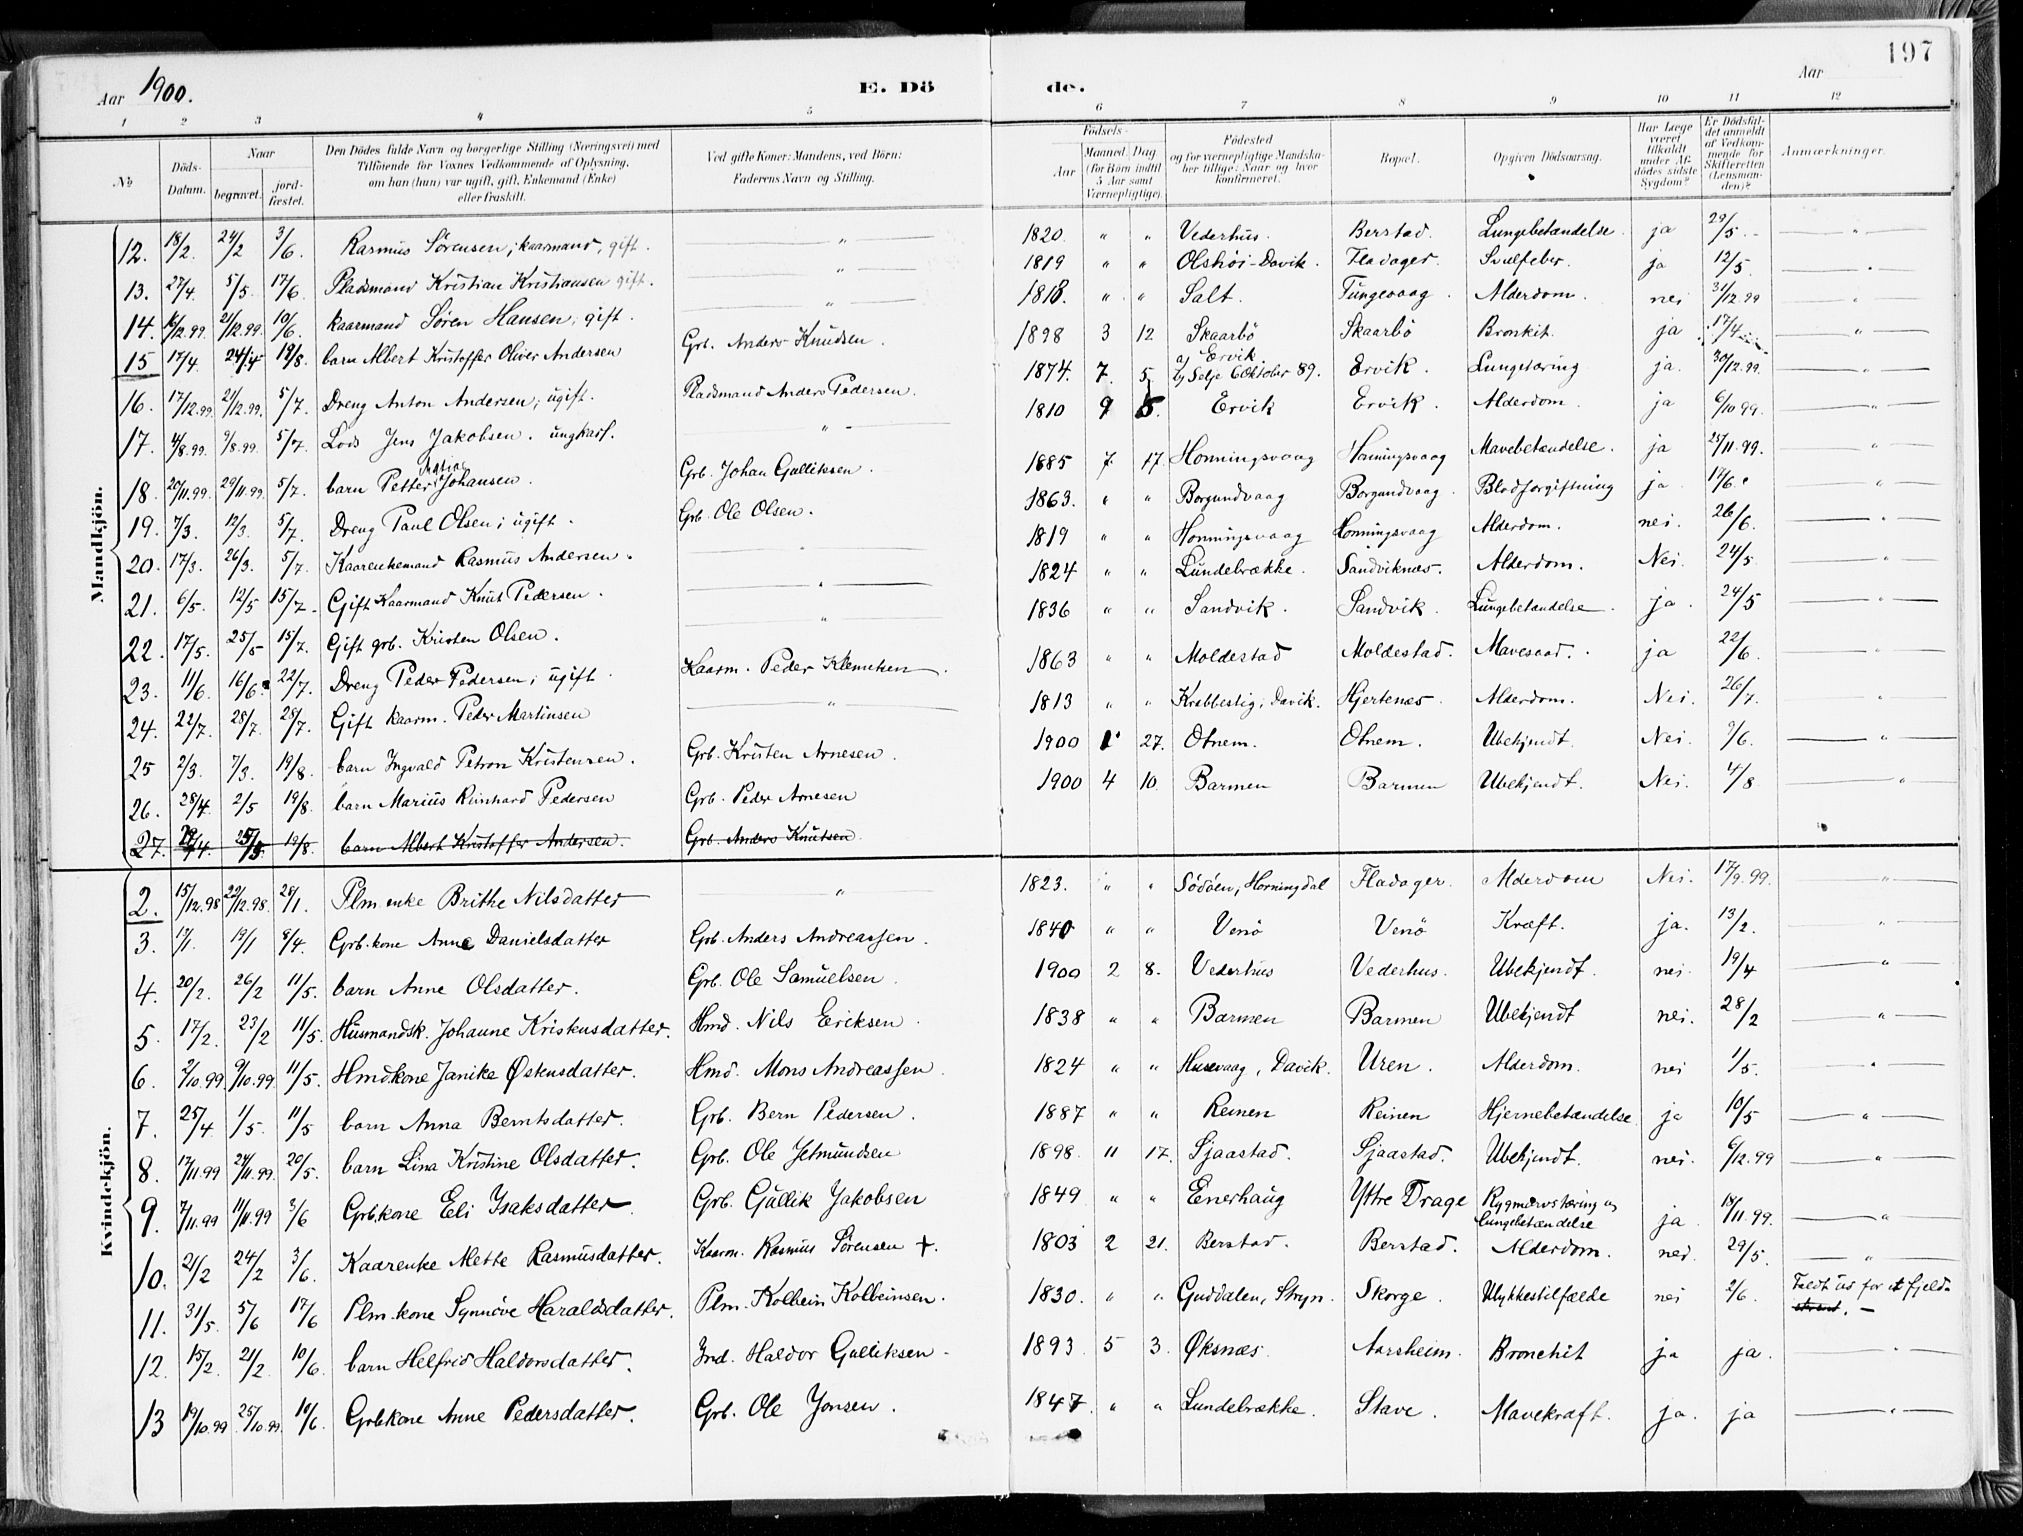 197
Aar 1900. E. Dö de. Aar
1 2 3 4 5 6 7 8 9 10 11 12
№ Döds-Datum. Naar begravet. jord-fæstet. Den Dödes fulde Navn og borgerlige Stilling (Næringsvei) med Tilföiende for Voxnes Vedkommende af Oplysning, om han (hun) var ugift, gift, Enkemand (Enke) eller fraskilt. Ved gifte Koner: Mandens, ved Börn: Faderens Navn og Stilling. Födsels- Aar Maaned. Dag (for Börn indtil 5 Aar samt Værnepligtige). Födested og for værnepligtige Mandskaber tillige: Naar og hvor konfirmeret. Bopæl. Opgiven Dödsaarsag. Har Læge været tilkaldt under Afdödes sidste Sygdom? Er Dödsfaldet anmeldt af Vedkommende for Skifteretten (Lensmanden)? Anmærkninger.
Mandkjön.
12. 18/2. 24/2 3/6. Rasmus Sörensen, kaarmand, gift. " 1820. " " Vederhus. Berstad. Lungebetændelse. ja 29/5. "
13. 27/4. 5/5. 17/6. Pladsmand Kristian Kristiansen gift. " 1819 " " Olshöi-Davik. Fladager. Svulfeber. ja 12/5. "
14. 16/12.99 21/12.99. 10/6. kaarmand Sören Hansen, gift. " 1818. " " Salt. Tungevaag. Alderdom. nei 31/12.99 "
15 17/4. 24/4 19/8. barn Albert Kristoffer Oliver Andersen Grb. Anders Knudsen. 1898 3 12 Skaarbö Skaarbö Bronkit. ja 17/4 "
16. 17/12.99. 21/12.99. 5/7. Dreng Anton Andersen; ugift. Pladsmand Anders Pedersen. 1874. 7. 5 a) Ervik b) Selje 6 Oktober 89. Ervik. Lungetæring ja. 30/12.99. "
17. 4/8.99. 9/8.99. 5/7 Lods Jens Jakobsen. ungkarl. " 1810 9 5. Ervik Ervik. Alderdom. ja 6/10 99. "
18. 20/11.99. 29/11.99. 5/7. barn Petter Johansen. Grb. Johan Gulliksen. 1885 7. 17. Honningsvaag Honningsvaag Mavebetændelse. ja 25/11.99. "
19. 7/3. 12/3. 5/7. Dreng Paul Olsen; ugift. Grb. Ole Olsen. 1863. " " Borgundvaag Borgundvaag Blodforgiftning ja. 17/6. "
20. 17/3. 26/3. 5/7. Kaarenkemand Rasmus Andersen. " 1819 " " Honningsvaag Honningsvaag Alderdom. nei. 26/6. "
21. 6/5. 12/5 15/7. Gift Kaarmand Knut Pedersen. " 1824 " " Lundebrække. Sandviknæs. Alderdom. Nei. 24/5. "
22. 17/5. 25/5 15/7. Gift grb. Kristen Olsen. " 1836 " " Sandvik. Sandvik. Lungebetændelse. ja. 24/5 "
23. 11/6. 16/6. 22/7. Dreng Peder Pedersen; ugift. Kaarm. Peder Klemetsen. 1863 " " Moldestad Moldestad. Mavesaar. ja 22/6. "
24. 22/7. 28/7. 28/7. Gift kaarm. Peder Martinsen " 1813 " " Krabbestig, Davik. Hjertenæs. Alderdom. Nei. 26/7. "
25 2/3. 7/3. 19/8. barn Ingvald Petron Kristensen. Grb. Kristen Arnesen. 1900 1 27. Otnem. Otnem. Ubekjendt. Nei. 9/6. "
26. 28/4. 2/5 19/8. barn Marius Reinhard Pedersen Grb. Peder Arnesen 1900 4 10. Barmen Barmen Ubekjendt. Nei. 4/8 "
27. 29/4. 25/5. 19/8. barn Albert Kristoffer Andersen. Grb. Anders Knutsen.
Kvindekjön.
2. 15/12.98 22/12.98. 28/1. Plm enke Brithe Nilsdatter " 1823. " " Södöen, Horningdal Fladager. Alderdom Nei. 17/9.99. "
3. 13/1. 19/1 8/4. Grb.kone Anne Danielsdatter Grb. Anders Andreassen. 1840 " " Venö Venö Kræft. ja. 13/2. "
4. 20/2. 26/2 11/5. barn Anne Olsdatter. Grb. Ole Samuelsen 1900 2 8. Vederhus Vederhus. Ubekjendt. nei. 19/4 "
5. 17/2. 23/2 11/5. Husmandsk. Johanne Kristensdatter. Hmd. Nils Ericksen. 1838 " " Barmen Barmen Ubekjendt nei. 28/2 "
6. 2/10.99. 9/10.99. 11/5. Hmdkone Janike Østensdatter. Hmd. Mons Andreassen. 1824 " " Husevaag, Davik. Uren. Alderdom. nei 1/5. "
7. 25/4. 1/5. 11/5 barn Anna Berntsdatter. Grb. Bern Pedersen. 1887 " " Reinen Reinen Hjernebetændelse ja 10/5 "
8. 17/11.99 24/11.99. 20/5. barn Lina Kristine Olsdatter. Grb. Ole Jetmundsen 1898. 11 17. Sjaastad. Sjaastad. Ubekjendt. nei. 6/12.99 "
9. 7/11.99 11/11.99 3/6 Grb.kone Eli Isaksdatter. Grb. Gullik Jakobsen 1849 " " Enerhaug Yttre Drage Rygmarvstæring og Lungebetændelse ja 18/11.99. "
10. 21/2 24/2 3/6. Kaarenke Mette Rasmusdatter. Kaarm. Rasmus Sörensen +. 1803 2 21. Berstad. Berstad. Alderdom. nei. 29/5. "
11. 31/5. 5/6 17/6 Plm.kone Synnöve Haraldsdatter. Plm. Kolbein Kolbeinsen. 1830. " " Guddalen, Stryn. Skorge. Ulykkestilfælde nei 2/6. Faldt ud for et fjeld.
12. 15/2. 21/2. 10/6. barn Helfrid Haldorsdatter. Ind. Haldor Gulliksen 1893 5 3. Øksnæs. Aarsheim. Bronchit ja ja. "
13 19/10.99 25/10.99. 10/6. Grbkone Anne Pedersdatter. Grb. Ole Jonsen. 1847. " " Lundebrække. Stave. Mavekræft. ja. ja "